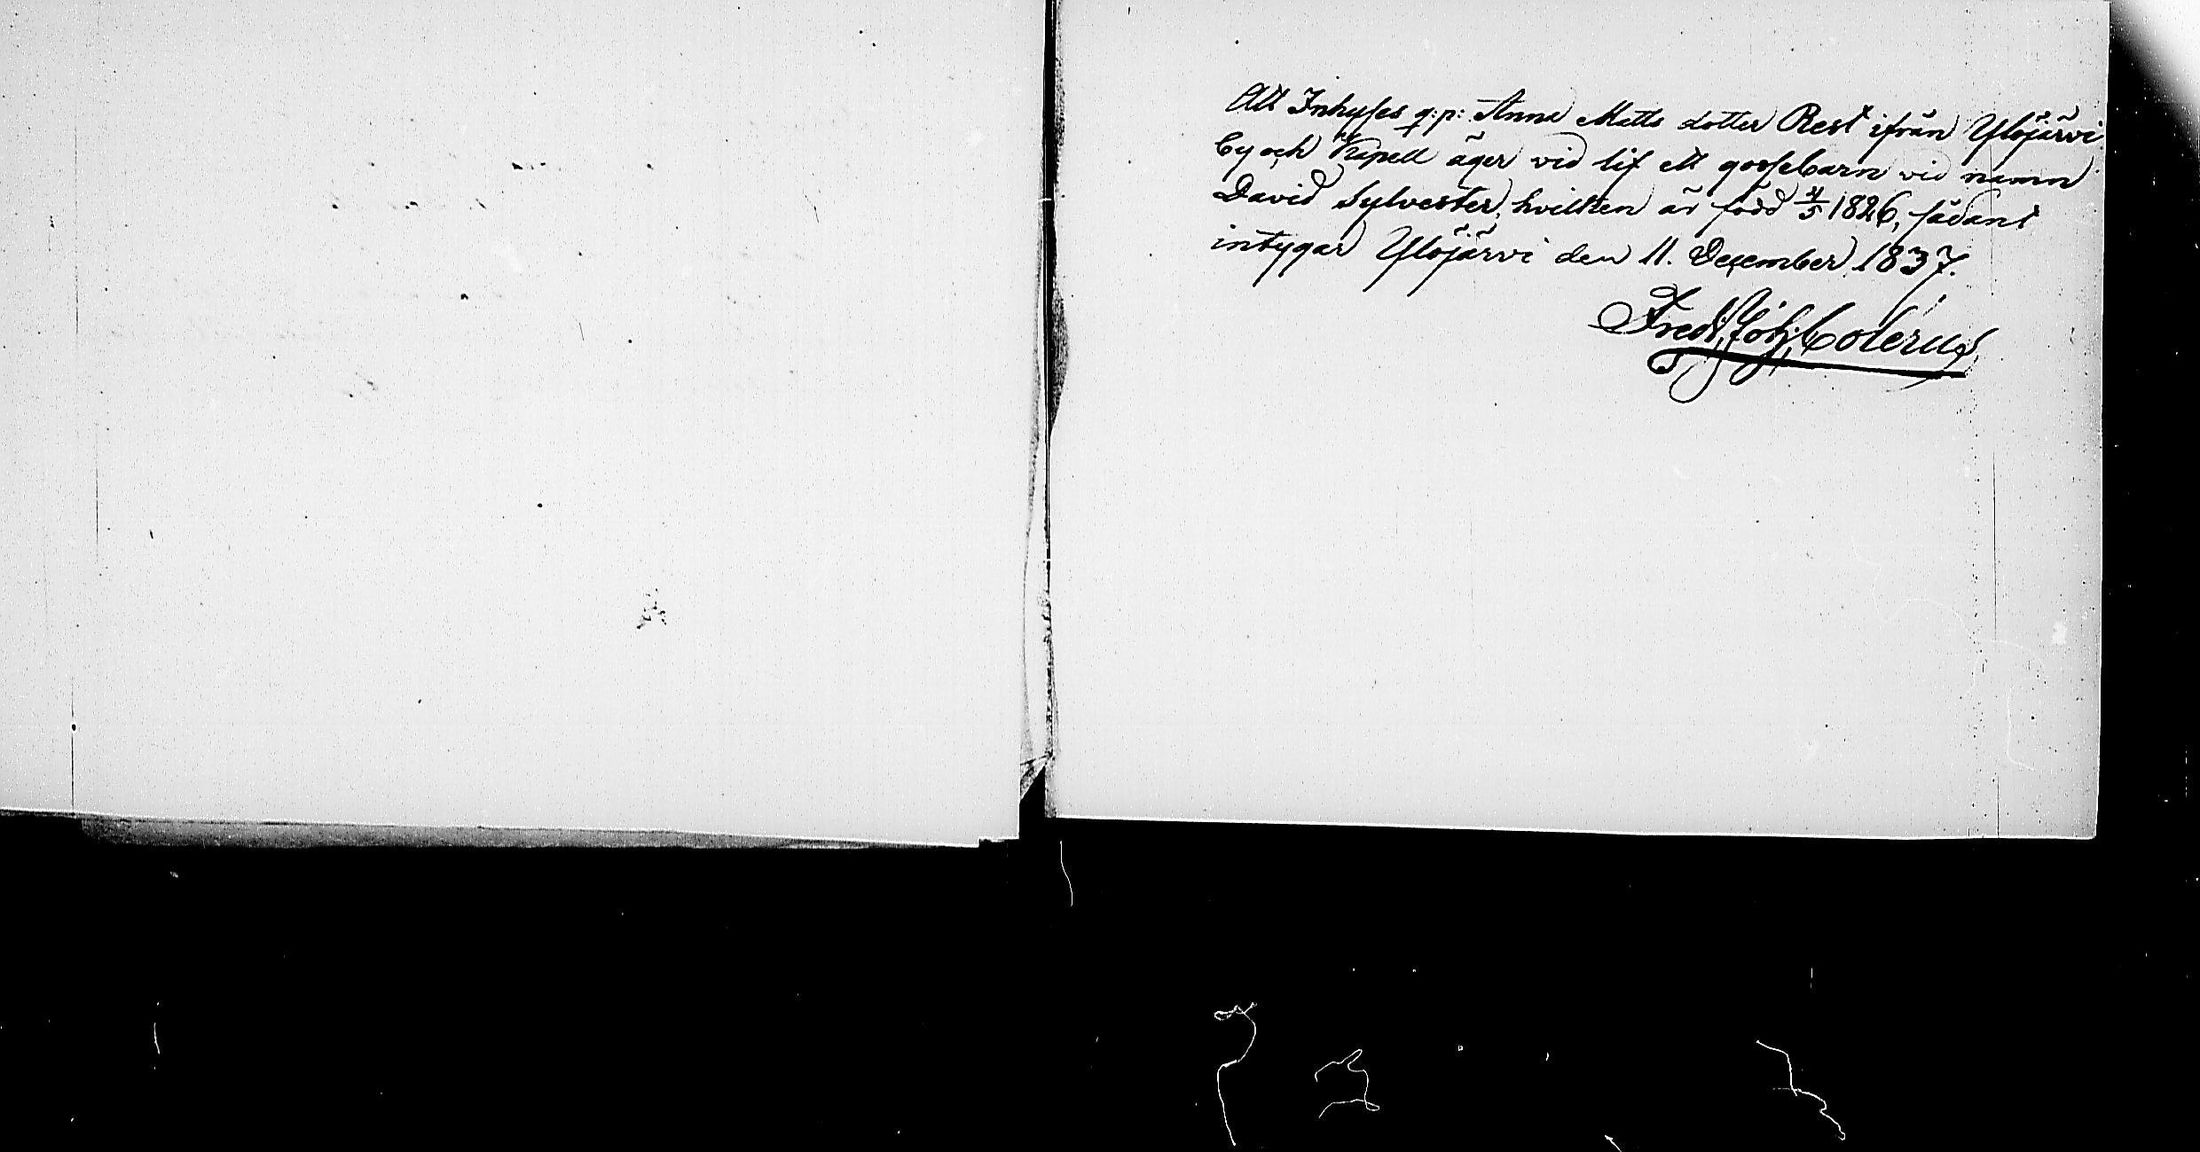 Att Inhyses q:p: Anna Matts dotter Rest ifrån Ylöjärvi
by och Kapell äger vid lif ett gossebarn vid namn
David Sylvester, hvilken är född 4/5 1826, sådant
intygar Ylöjärvi den 11. December 1837.
Fredr. Joh. Colerus